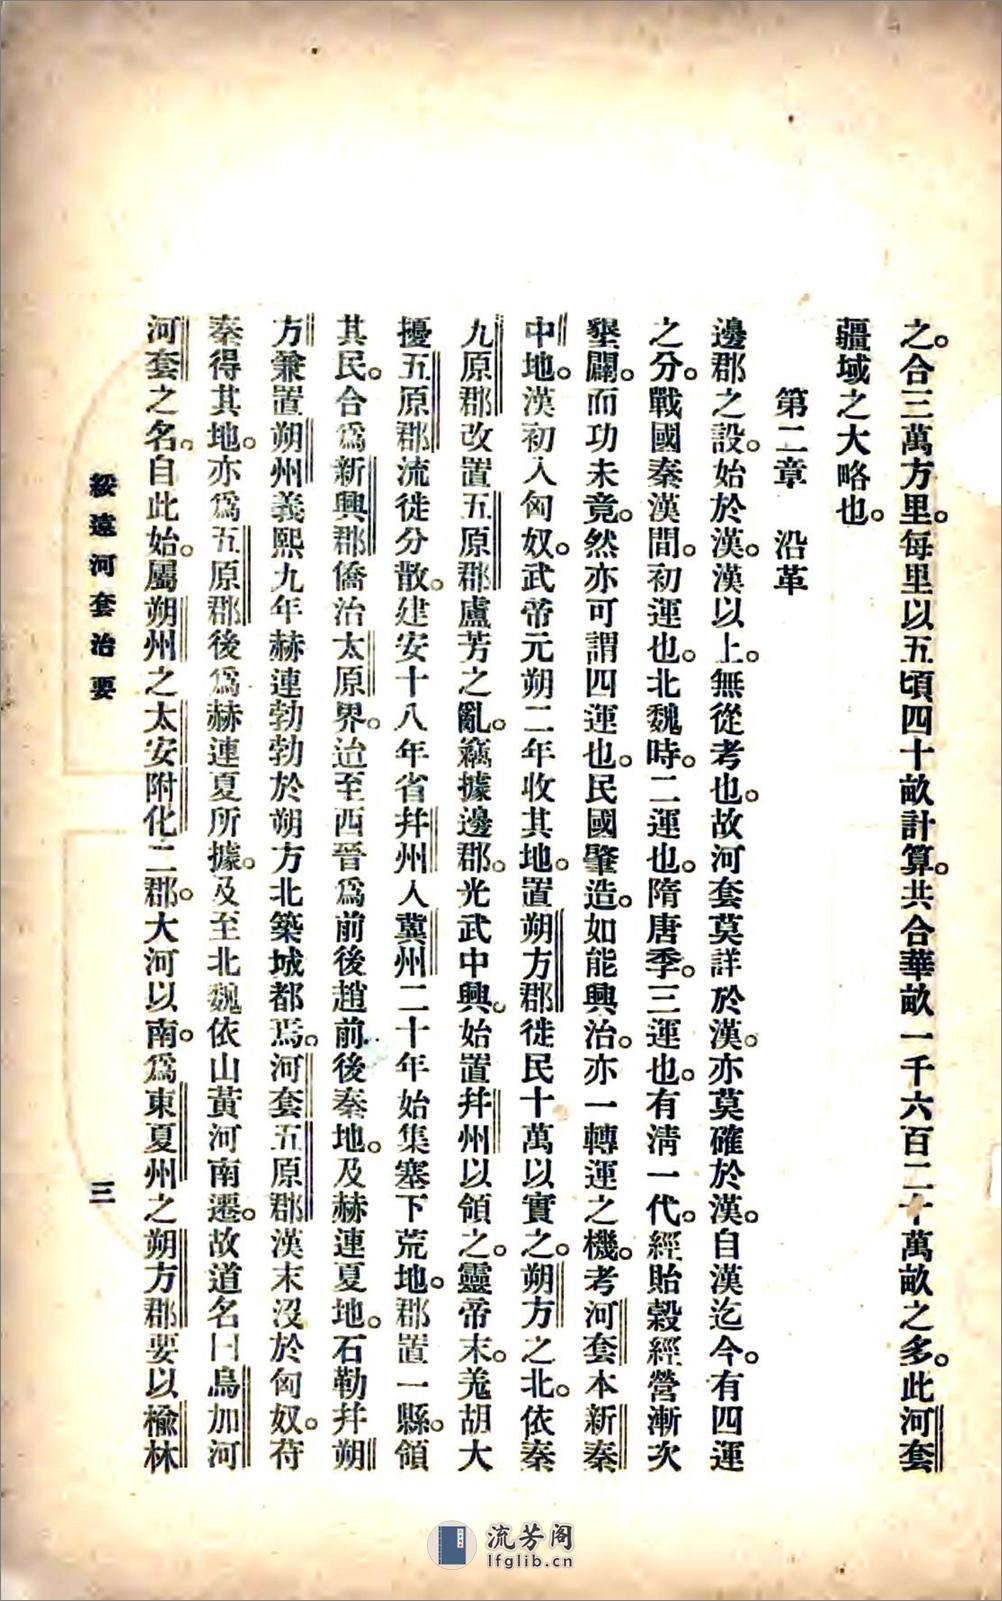 之。合三萬方里。每里以五頃四十畝計算。共合華畝一千六百二十萬畝之多。此河套
疆域之大略也。
第二章　沿革
邊郡之設。始於漢。漢以上。無從考也。故河套莫詳於漢。亦莫確於漢。自漢迄今。有四運
之分。戰國秦漢間。初運也。北魏時。二運也。隋唐季。三運也。有淸一代。經貽穀經營漸次
墾闢。而功未竟。然亦可謂四運也。民國肇造。如能興治。亦一轉運之機。考河套本新秦
中地。漢初入匈奴。武帝元朔二年收其地。置朔方郡徙民十萬以實之。朔方之北。依秦
九原郡改置五原郡盧芳之亂。竊據邊郡。光武中興。始置幷州以領之。靈帝末。羗胡大
擾五原郡流徙分散。建安十八年省幷州入冀州二十年始集塞下荒地。郡置一縣。領
其民。合爲新興郡僑治太原界。迨至西晉爲前後趙前後秦地。及赫連夏地。石勒幷朔
方兼置朔州義熙九年赫連勃勃於朔方北築城都焉。河套五原郡漢末沒於匈奴。苻
秦得其地。亦爲五原郡後爲赫連夏所據。及至北魏依山黃河南遷。故道名曰烏加河
河套之名。自此始。屬朔州之太安附化二郡。大河以南。爲東夏州之朔方郡要以楡林
綏遠河套治要
三
流芳阁
lfglib.cn